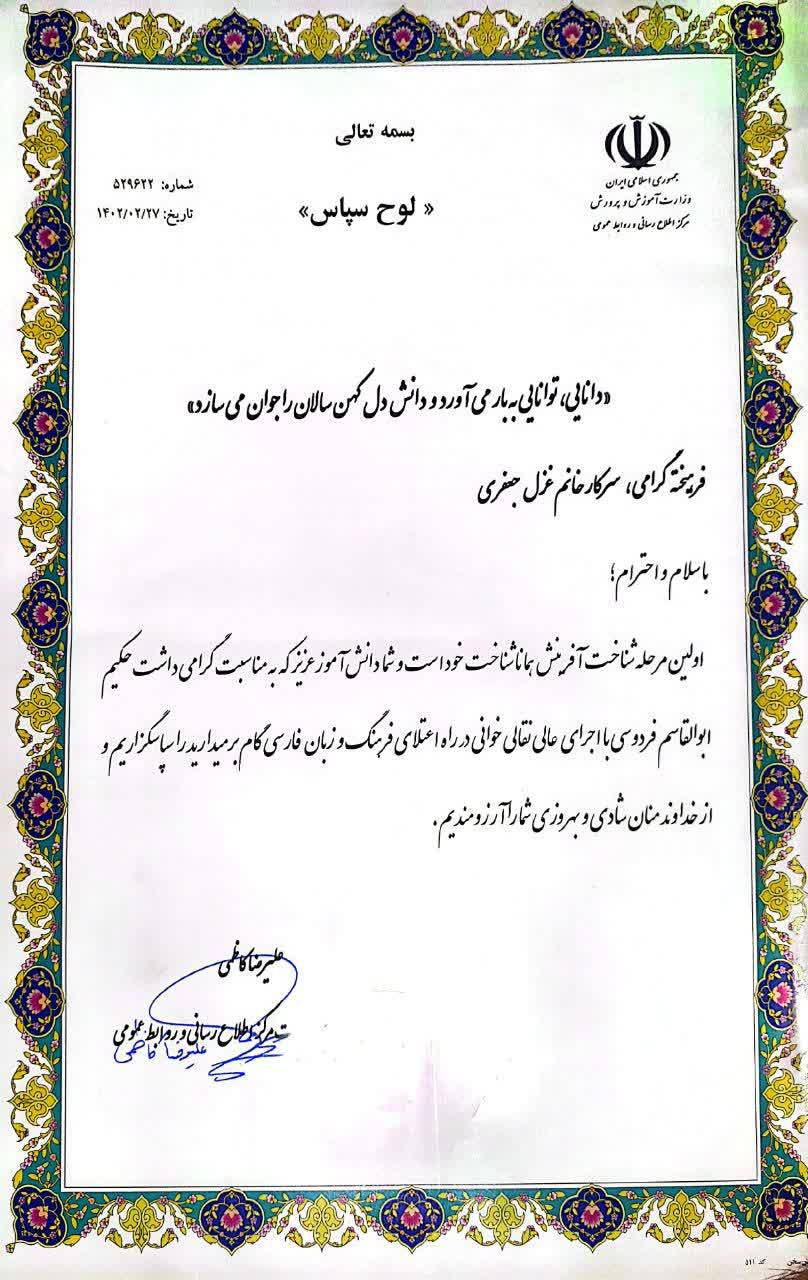 بسمه تعالی
جمهوری اسلامی ایران
وزارت آموزش و پرورش
مرکز اطلاع رسانی و روابط عمومی
شماره: ۵۲۹۶۲۲
تاریخ: ۱۴۰۲/۰۲/۲۷
« لوح سپاس»
«دانایی، توانایی به بار می آورد و دانش دل کهن سالان را جوان می سازد»
فرهیخته گرامی، سرکار خانم غزل جعفری
با سلام و احترام؛
اولین مرحله شناخت آفرینش همانا شناخت خود است و شما دانش آموز عزیز که به مناسبت گرامی داشت حکیم
ابوالقاسم فردوسی با اجرای عالی نقالی خوانی در راه اعتلای فرهنگ و زبان فارسی گام برمیدارید را سپاسگزاریم و
از خداوند منان شادی و بهروزی شما را آرزومندیم.
علیرضا کاظمی
مرکز اطلاع رسانی و روابط عمومی
علیرضا کاظمی
کد ۵۱۱